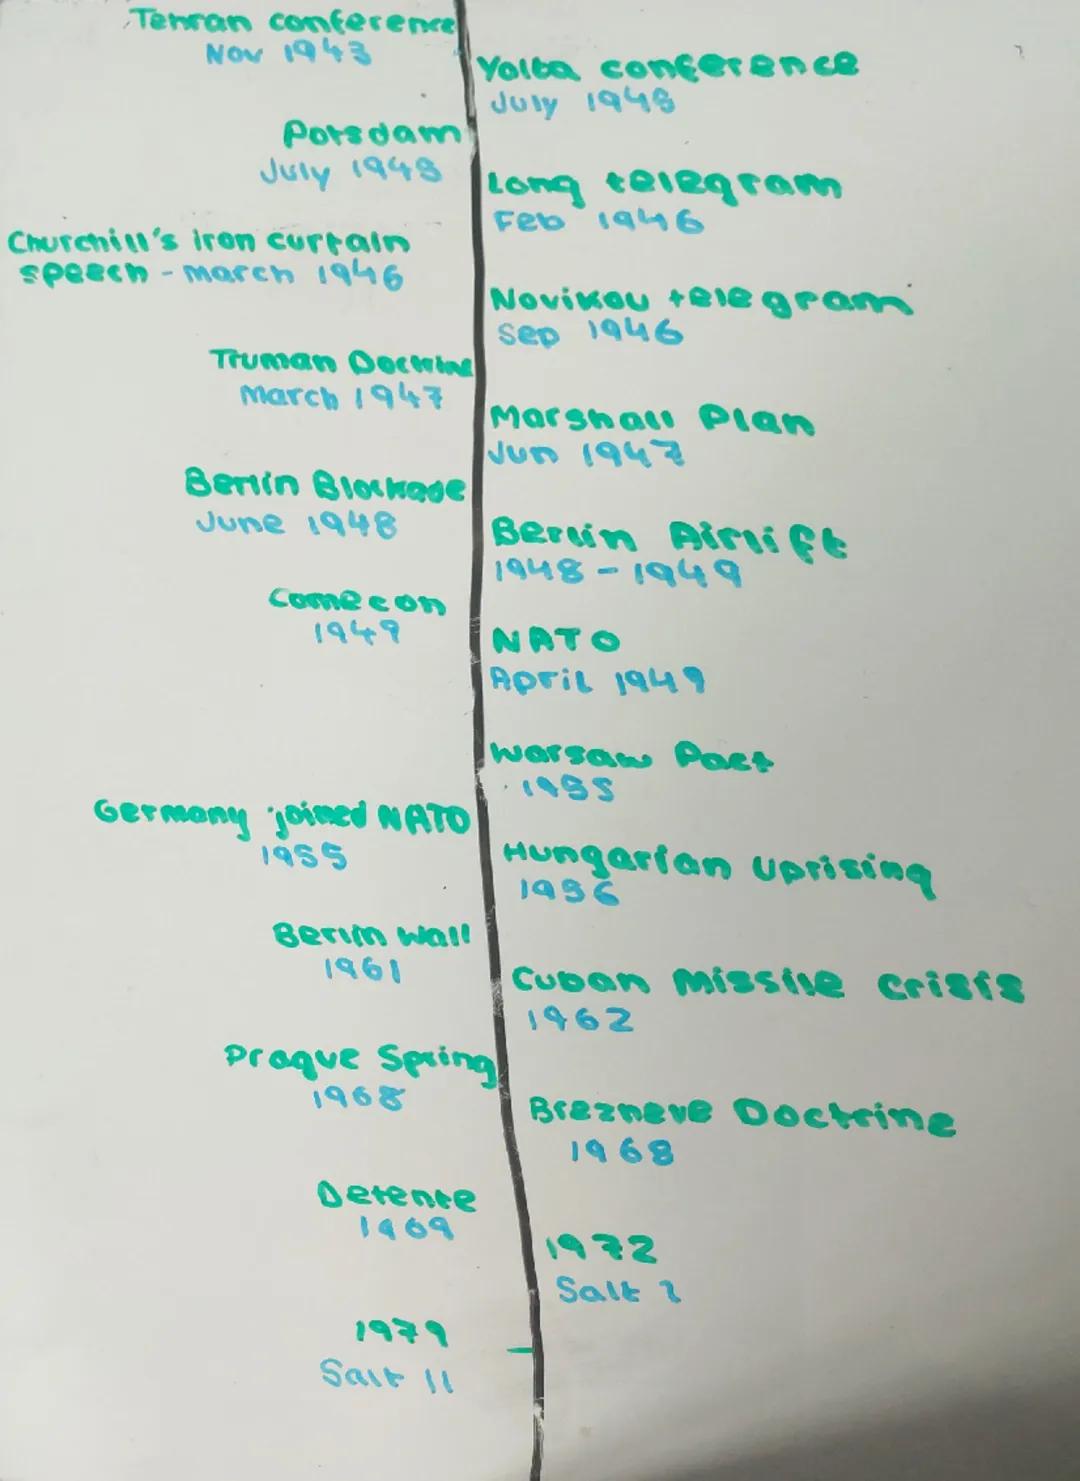 Tehran conference
Nov 1943
Yalta conference
July 1945
Potsdam
July 1945
Long telegram
Feb 1946
Churchill's iron curtain
speech - march 1946
Novikov telegram
Sep 1946
Truman Doctrine
March 1947
Marshall Plan
Jun 1947
Berlin Blockade
June 1948
Berlin Airlift
1948 - 1949
Comecon
1949
NATO
April 1949
Warsaw Pact
1955
Germany joined NATO
1955
Hungarian Uprising
1956
Berlin Wall
1961
Cuban Missile crisis
1962
Prague Spring
1968
Brezneve Doctrine
1968
Detente
1969
1972
Salt 1
1979
Salt 11